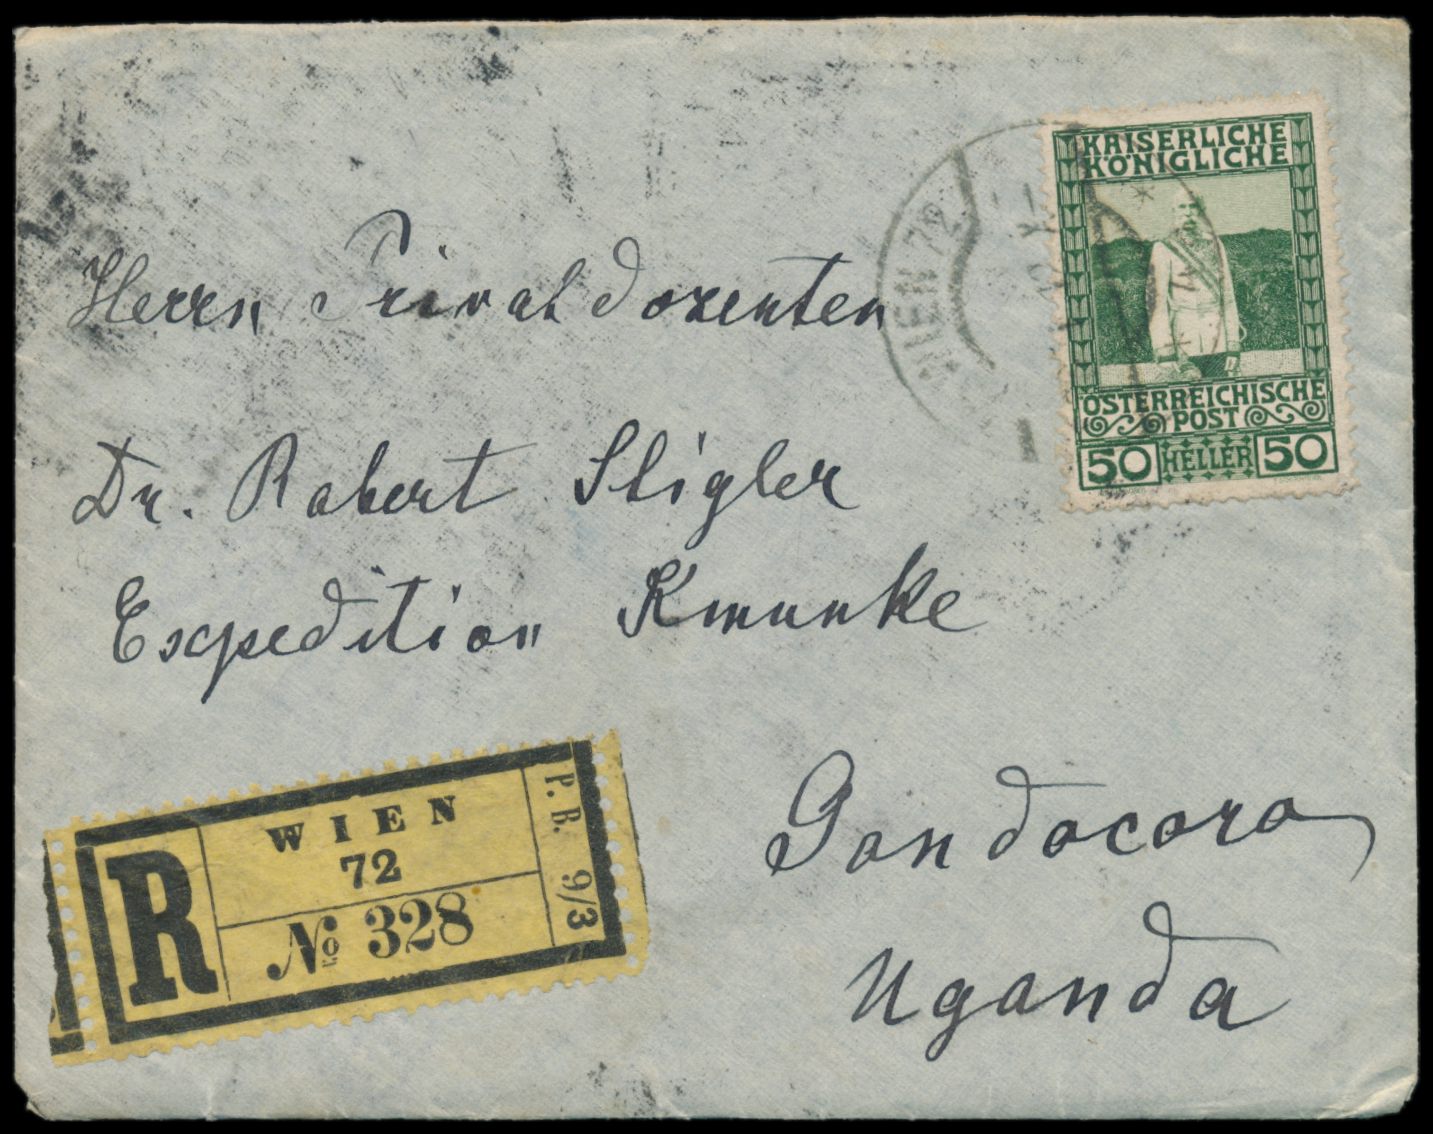 KAISERLICHE
KÖNIGLICHE
ÖSTERREICHISCHE
POST
50 HELLER 50
WIEN 72
Herrn Privatdozenten
Dr. Robert Stigler
Expedition Kmunke
Gondocoro
Uganda
R
WIEN
72
No 328
P. B. 9/3